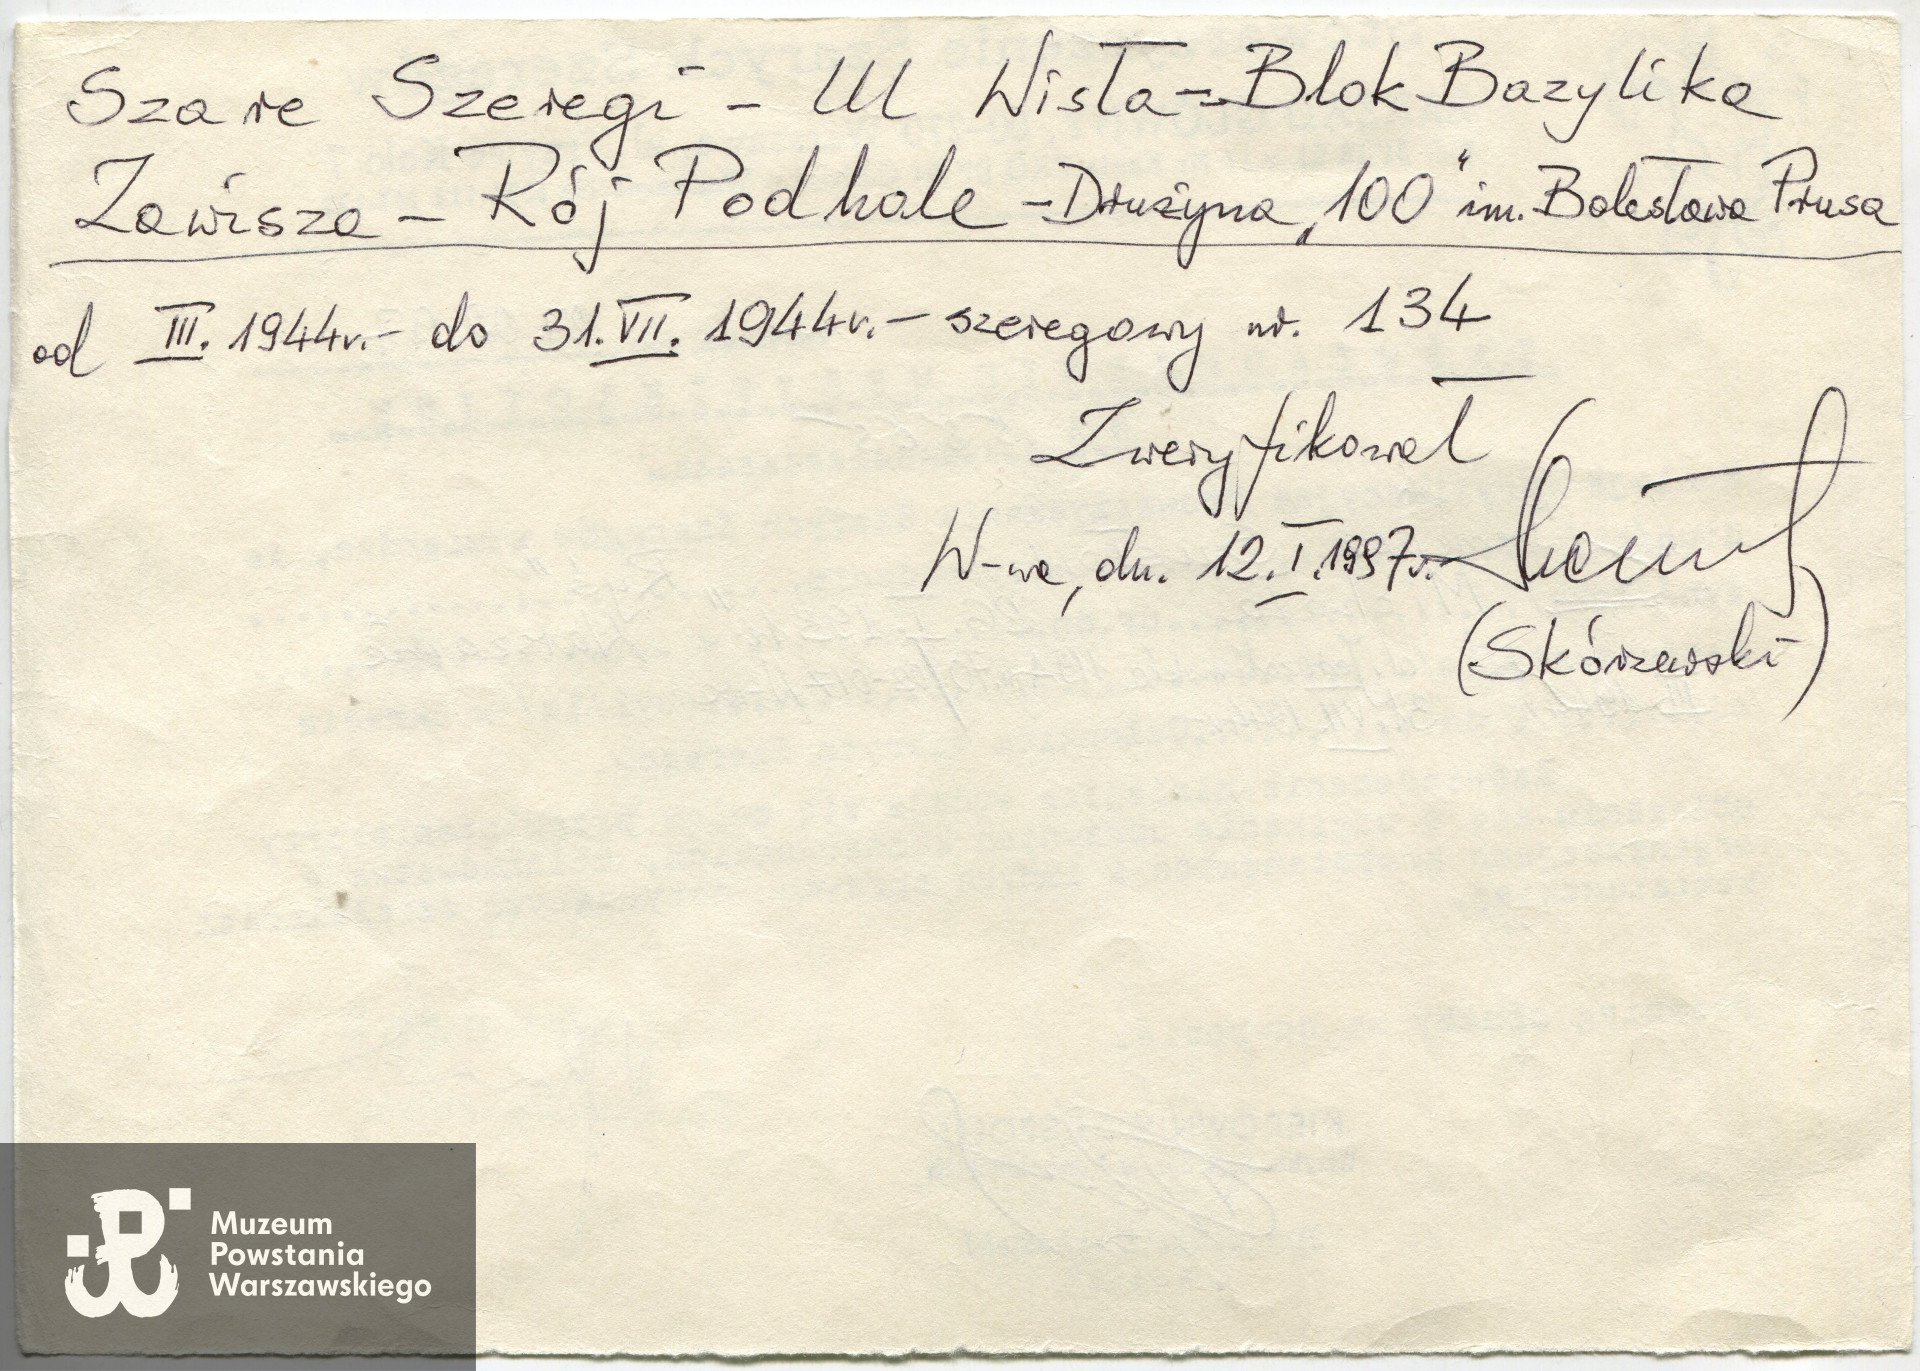 Szare Szeregi - Ul Wisła - Blok Bazylika
Zawisza - Rój Podhale - Drużyna „100" im. Bolesława Prusa
od III. 1944r. - do 31. VII. 1944r. - szeregowy nr. 134
Zweryfikował
W-wa, dn. 12. I. 1997r.
(Skórzewski)
Muzeum
Powstania
Warszawskiego